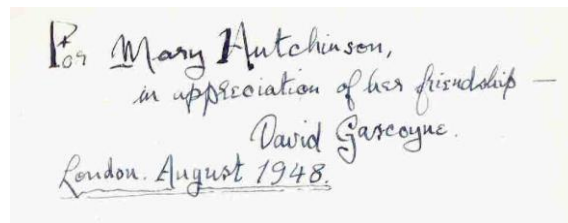 For Mary Hutchinson,
in appreciation of her friendship —
David Gascoyne.
London. August 1948.